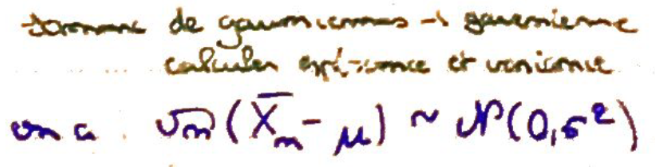 somme de gaussiennes → gaussienne
calculer espérance et variance
on a : √n (X̄ₙ - μ) ~ N(0,σ²)